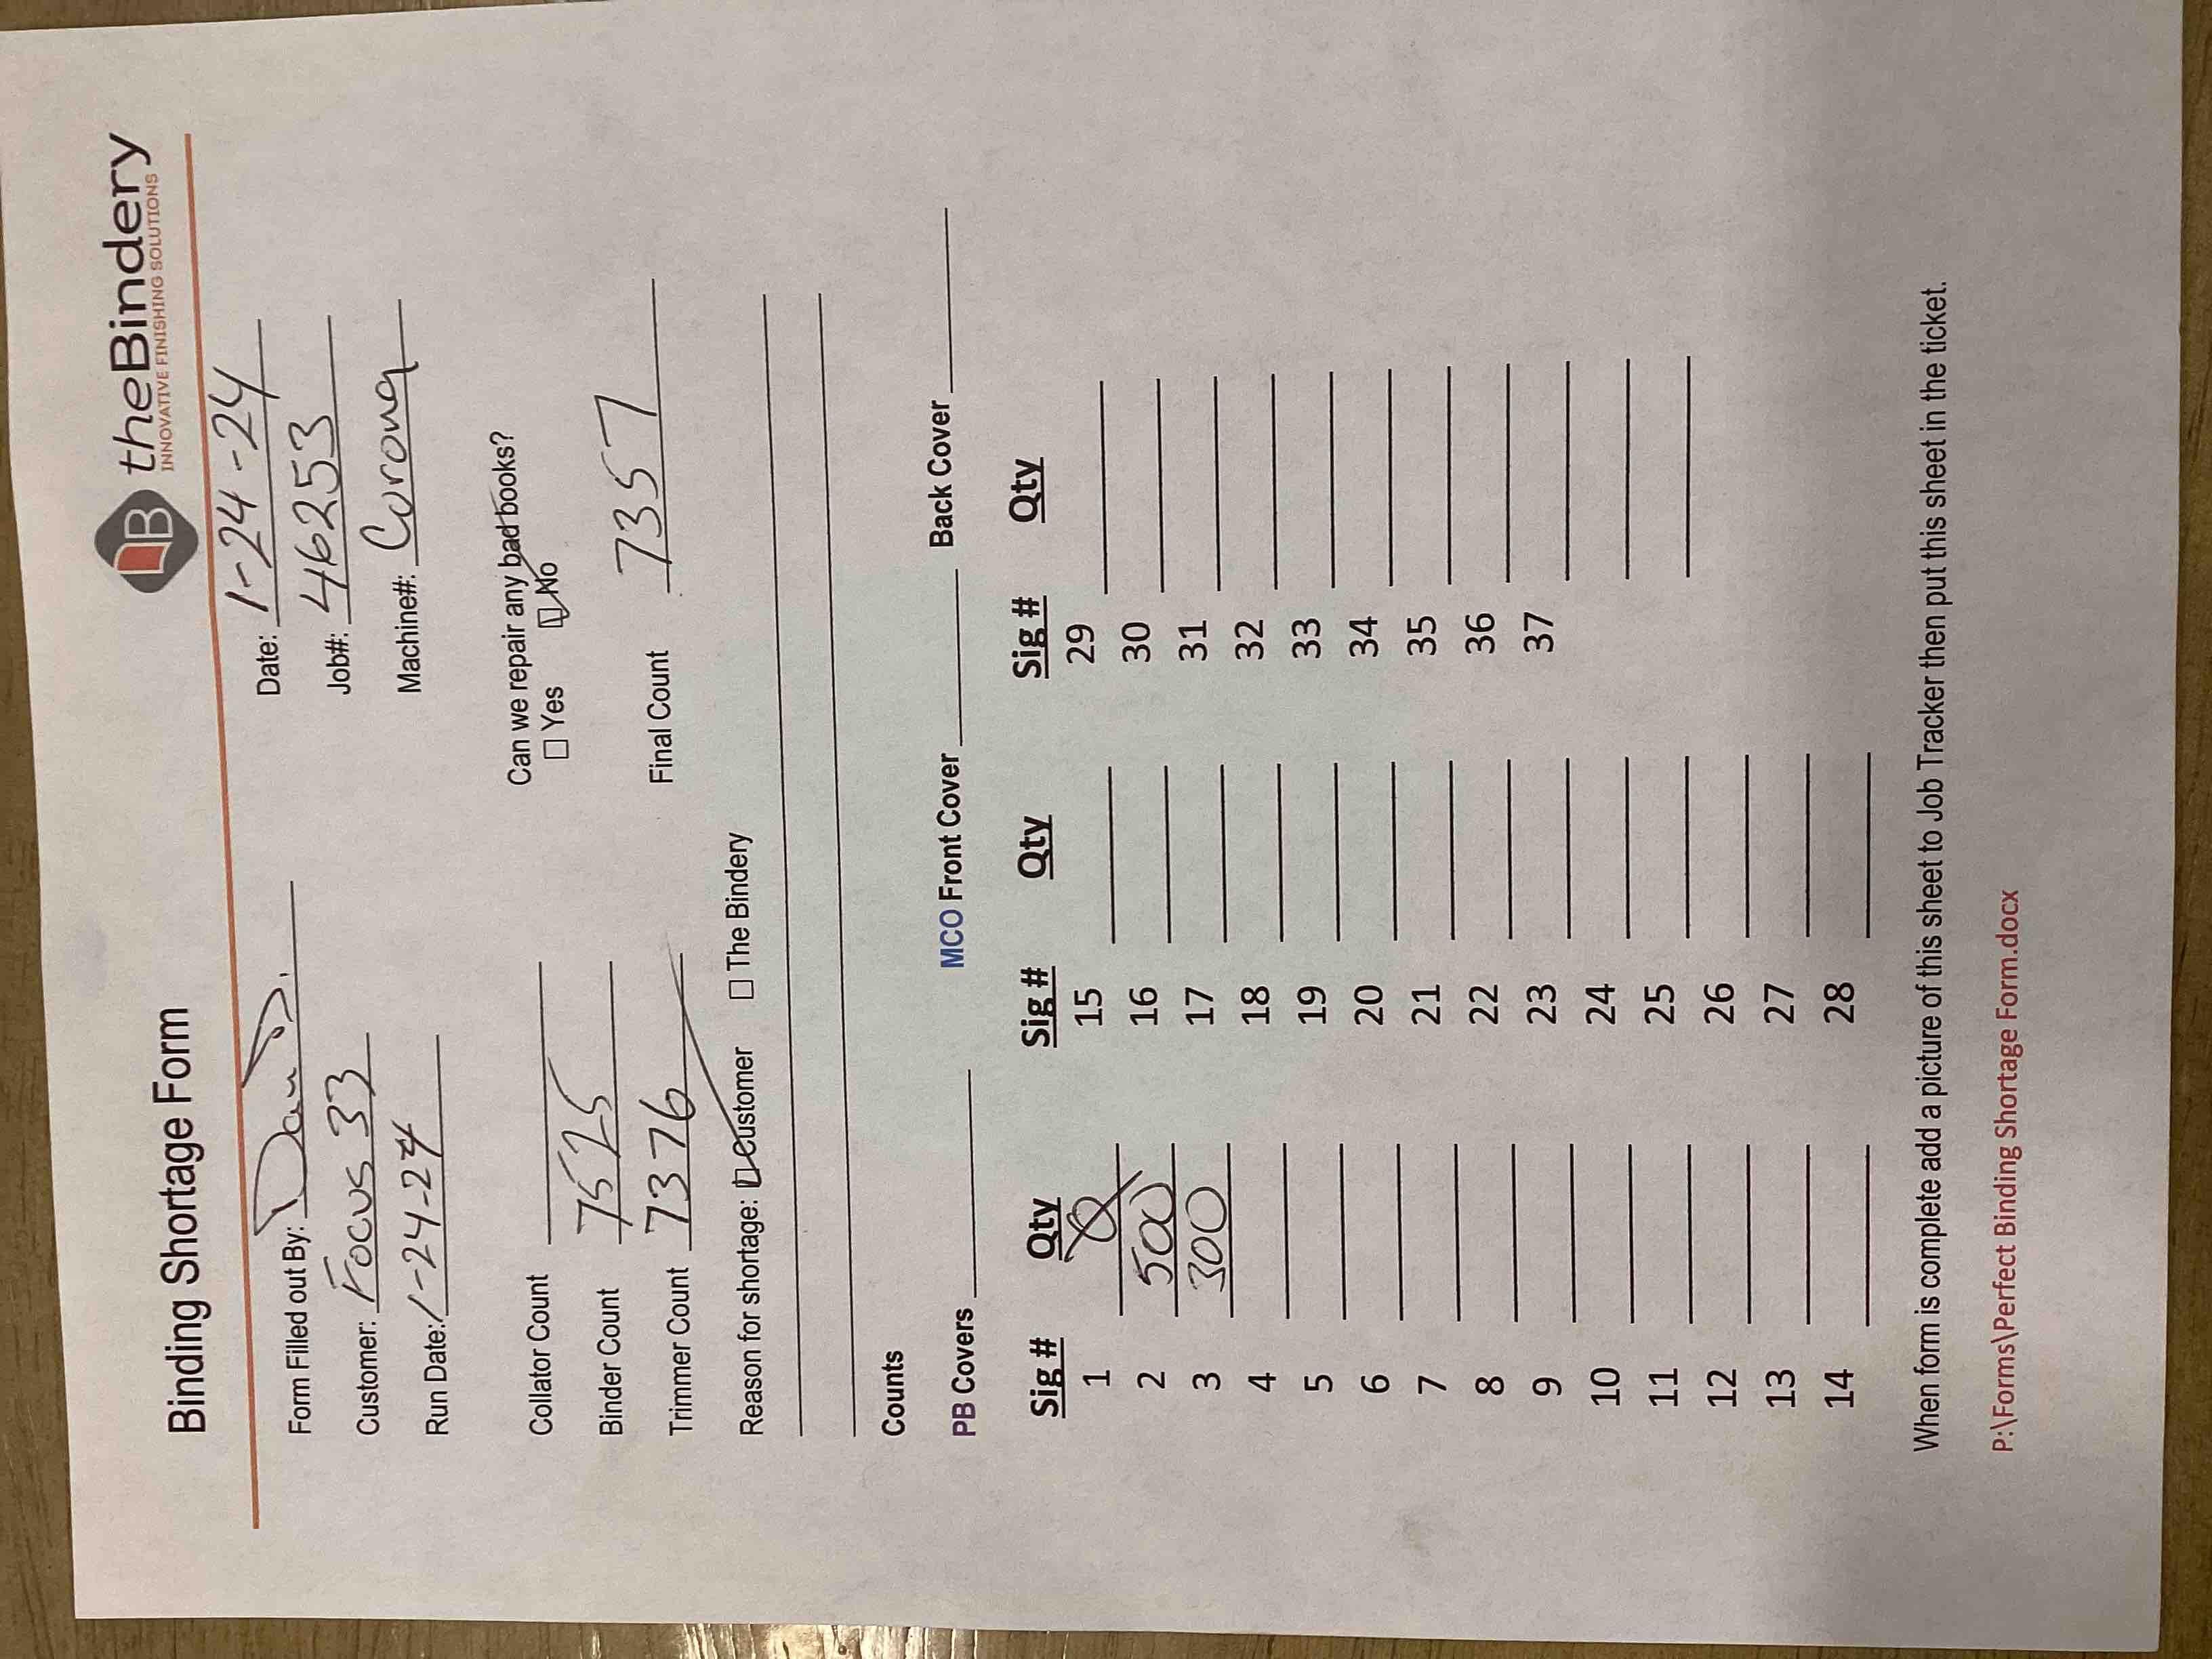 Binding Shortage Form
theBindery
INNOVATIVE FINISHING SOLUTIONS
Form Filled out By: David D. Date: 1-24-24
Customer: Focus 33 Job#: 46253
Run Date: 1-24-24 Machine#: Corona
Collator Count Can we repair any bad books?
Binder Count 7525 ☐ Yes ☑ No
Trimmer Count 7376 Final Count 7357
Reason for shortage: ☑ Customer ☐ The Bindery
Counts
PB Covers MCO Front Cover Back Cover
Sig # Qty Sig # Qty Sig # Qty
1 0 15 29
2 500 16 30
3 300 17 31
4 18 32
5 19 33
6 20 34
7 21 35
8 22 36
9 23 37
10 24
11 25
12 26
13 27
14 28
When form is complete add a picture of this sheet to Job Tracker then put this sheet in the ticket.
P:\Forms\Perfect Binding Shortage Form.docx